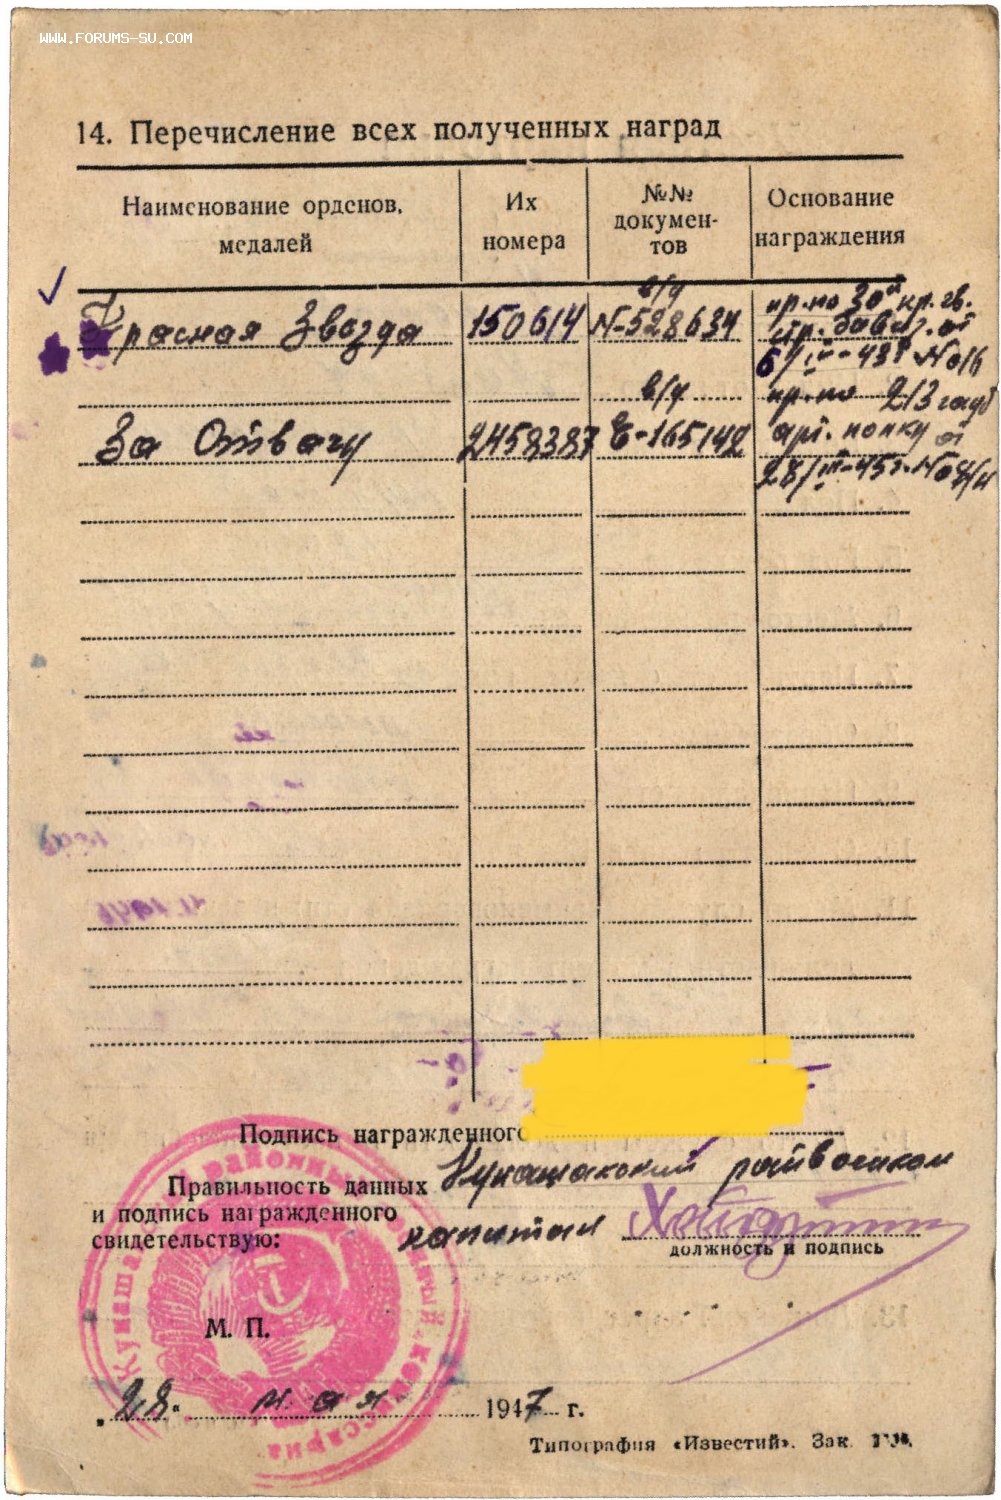 WWW.FORUMS-SU.COM
14. Перечисление всех полученных наград
Наименование орденов, медалей
Их номера
№№ докумен-тов
Основание награждения
Красная Звезда
150614
в/у
N-528634
пр. по 30й кр. гв.
стр. от
6/III-43г No16
За Отвагу
2458387
в/у
Е-165142
пр. по 213 гауб
арт. полку от
28/III-45г. No
Подпись награжденного
Правильность данных
и подпись награжденного
свидетельствую:
Кунашакский райвоенком
капитан
должность и подпись
М. П.
Кунашак районный комиссариат
„28“ мая 1947 г.
Типография «Известий». Зак.